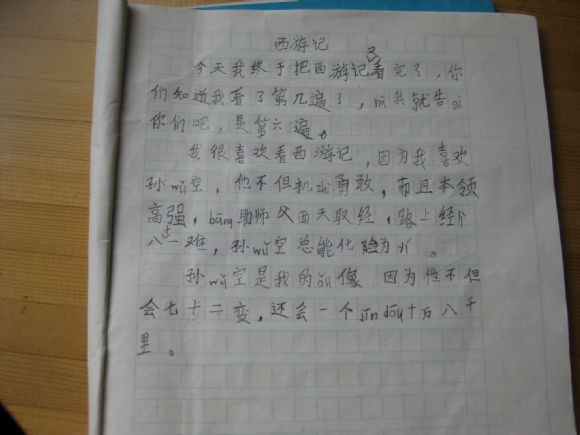 西游记
今天我终于把西游记又看完了，你
们知道我看了第几遍了，nà我就告sù
你们吧，是第六遍。
我很喜欢看西游记，因为我喜欢
孙wù空，他不但机zhì勇敢，而且本领
高强，bāng助师父西天取经，路上经lì
八十一难，孙wù空总能化险为yí。
孙wù空是我的ǒu像 因为他不但
会七十二变，还会一个jīn dǒu十万八千
里。